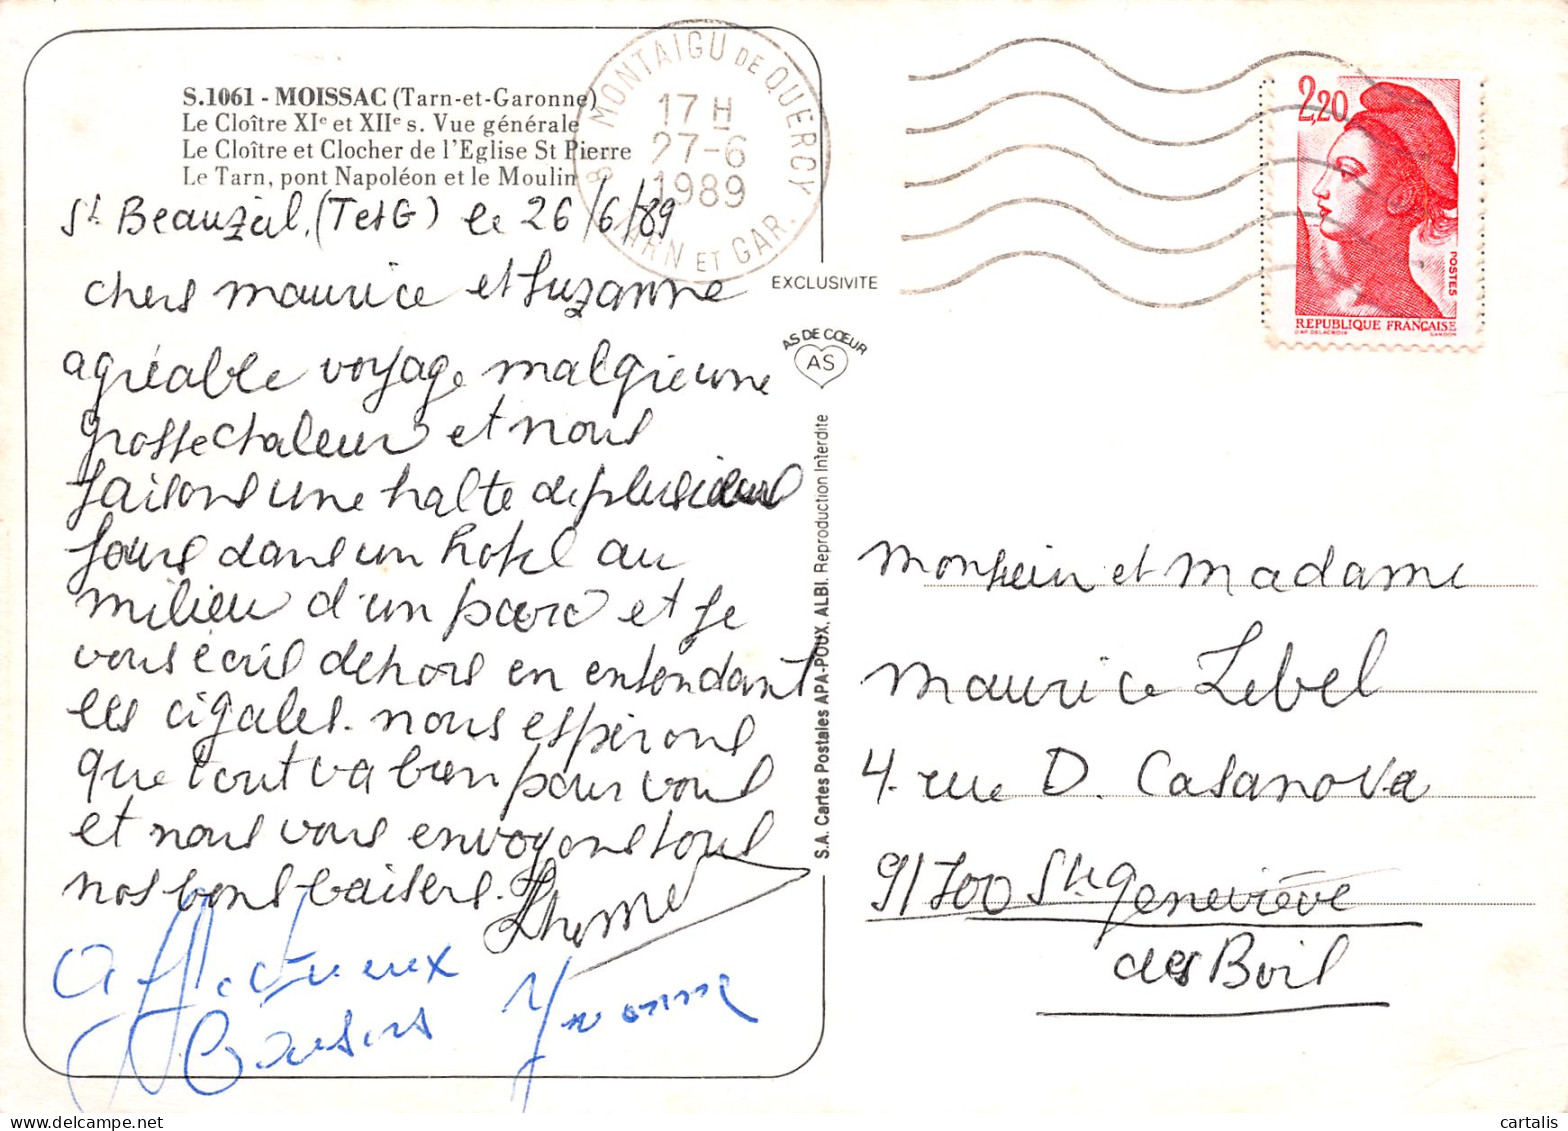 S.1061 - MOISSAC (Tarn-et-Garonne)
Le Cloître XIe et XIIe s. Vue générale
Le Cloître et Clocher de l'Eglise St Pierre
Le Tarn, pont Napoléon et le Moulin
St Beauzeil, (TetG) le 26/6/89
chers maurice et Suzanne
agréable voyage malgré une
grosse chaleur et nous
faisons une halte de plusieurs
jours dans un hotel au
milieu d'un parc et je
vous écris dehors en entendant
les cigales. nous espérons
que tout va bien pour vous
et nous vous envoyons tous
nos bons baisers.
Affectueux
Baisers Yvonne
82 MONTAIGU DE QUERCY
17 H
27-6
1989
TARN ET GAR.
EXCLUSIVITE
AS DE CŒUR
AS
S.A. Cartes Postales APA-POUX, ALBI. Reproduction Interdite
2,20
POSTES
REPUBLIQUE FRANÇAISE
D'AP. DELACROIX GANDON
Monsieur et Madame
Maurice Lebel
4. rue D. Casanova
91700 Ste Geneviève
des Bois
cartalis